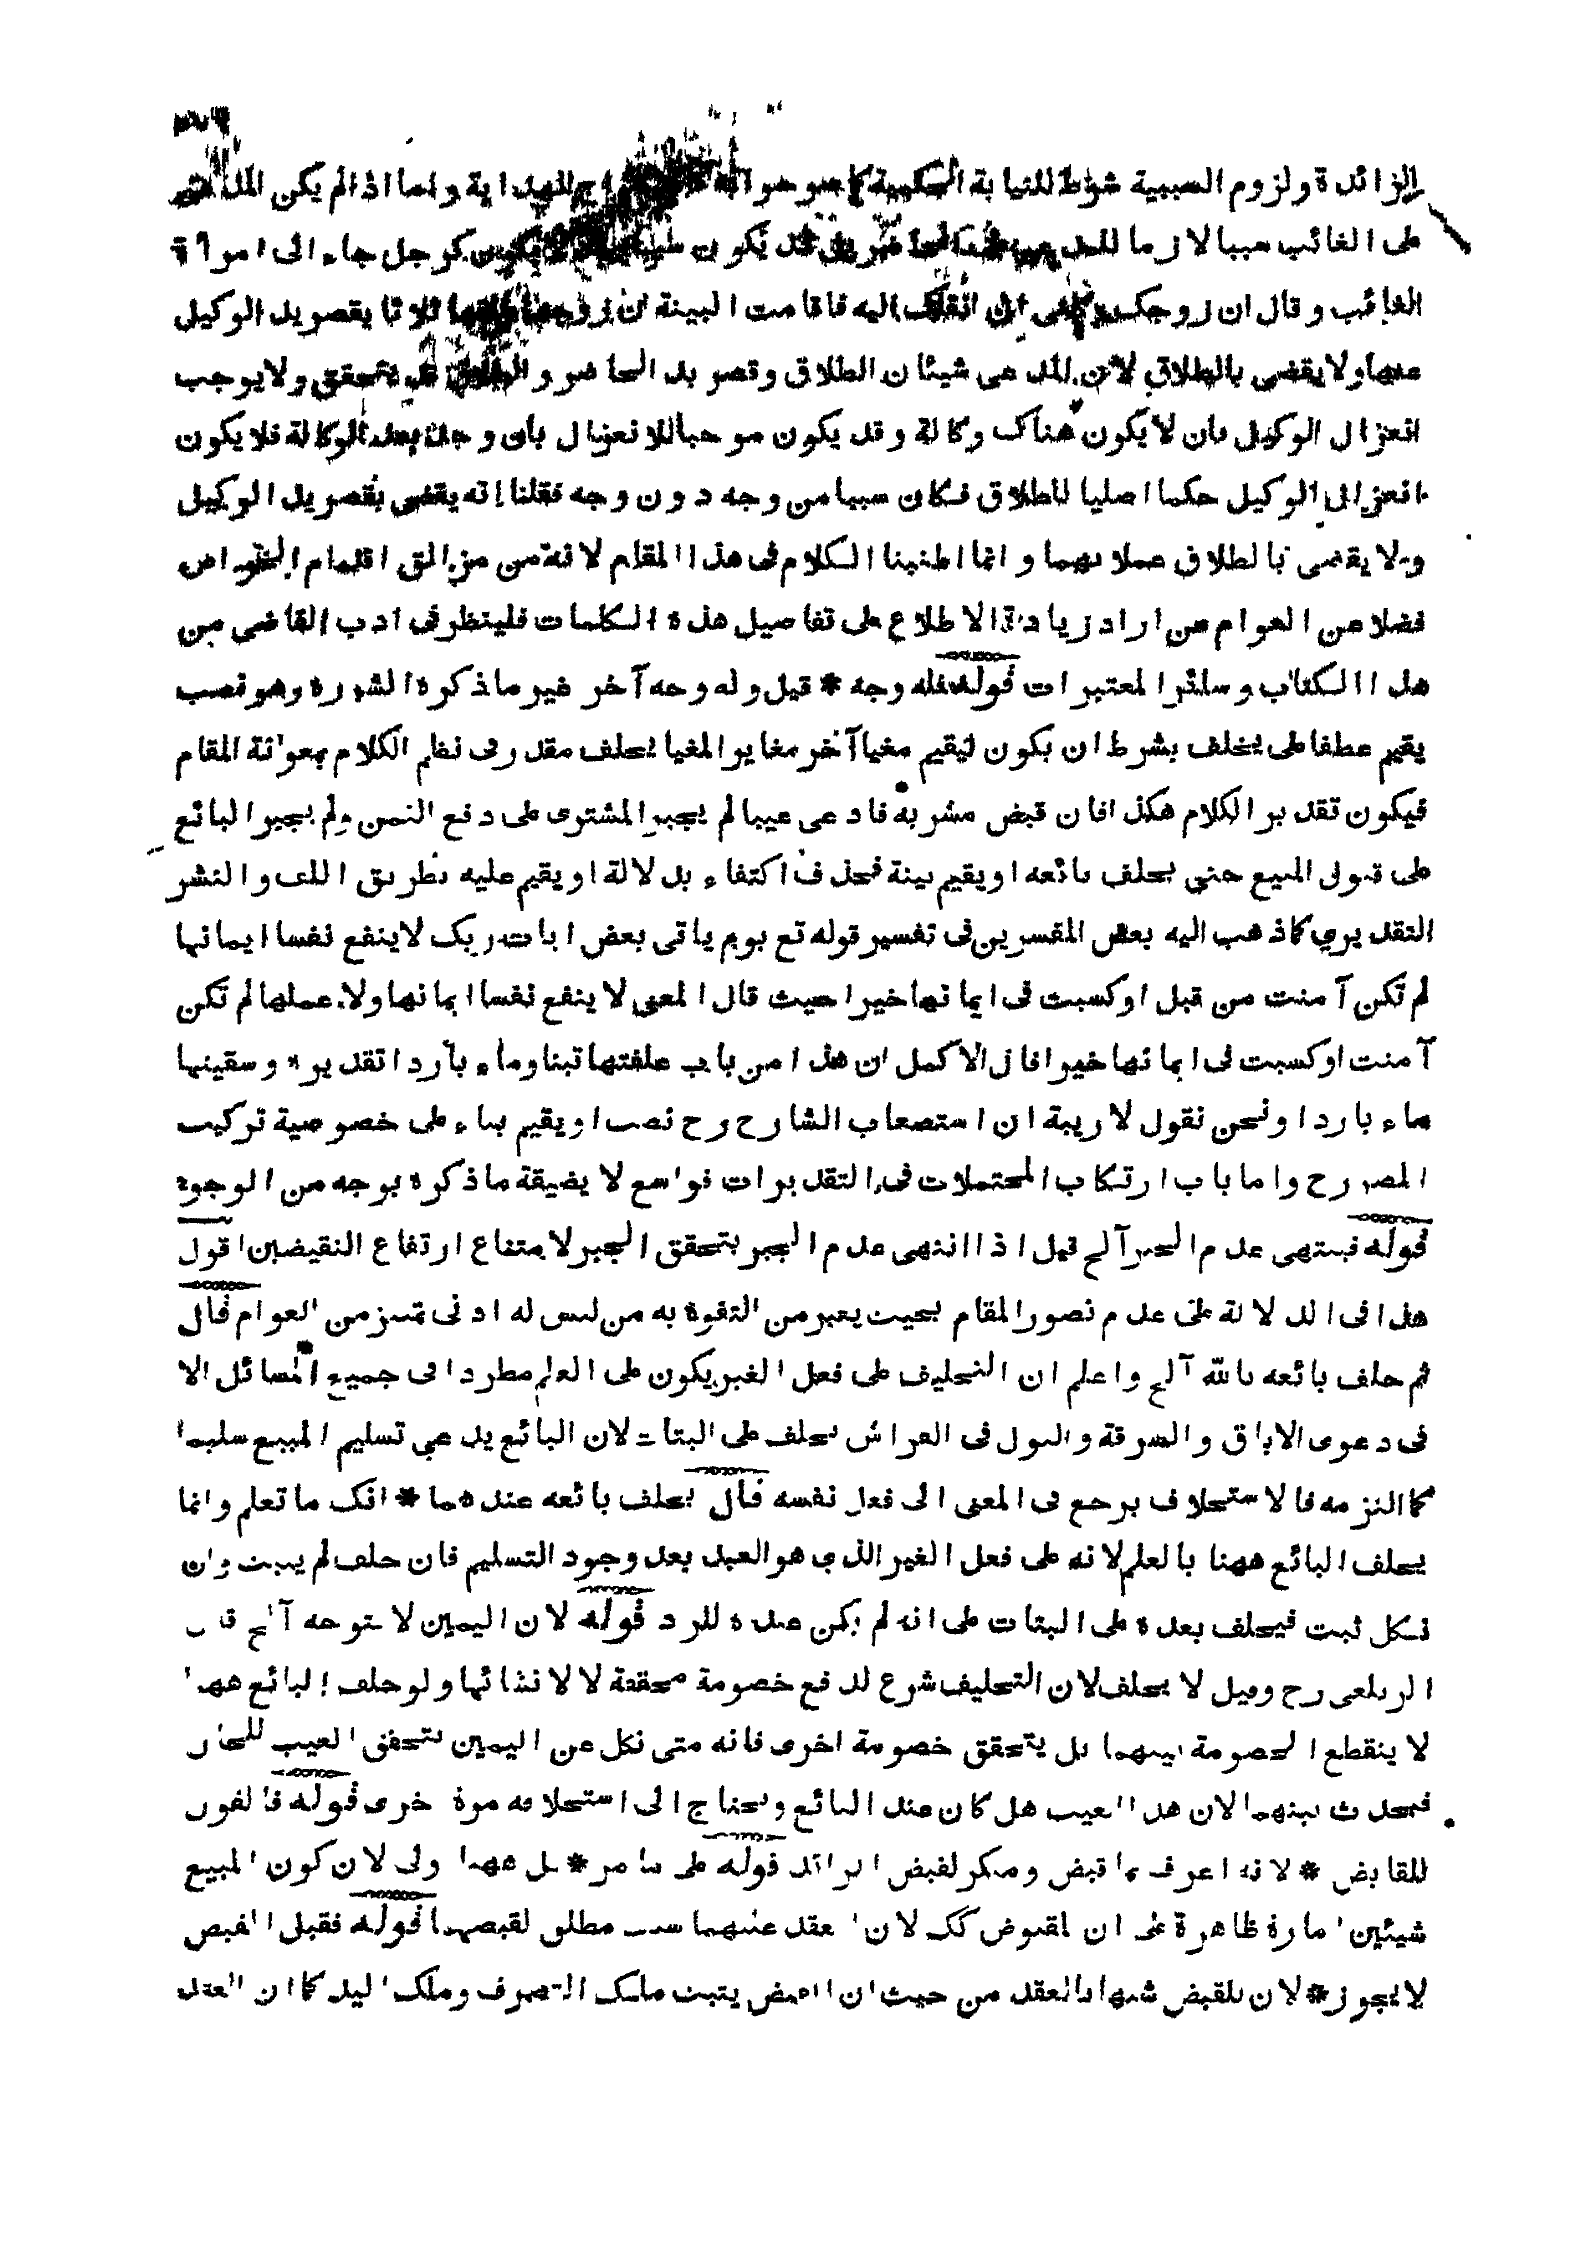 الزائدة ولزوم السببية شرط للنيابة الحكمية كما هو الهداية واما اذا لم يكن المدعى
على الغائب سببا لازما للمدعى قد يكون كرجل جاء الى امرأة
الغائب وقال ان زوجك وكلنى ان انقلك اليه فاقامت البينة ان زوجها طلقها ثلاثا يقصر يد الوكيل
عنها ولا يقضى بالطلاق لان المدعى شيئان الطلاق وقصر يد الحاضر والطلاق قد يتحقق ولا يوجب
انعزال الوكيل بان لا يكون هناك وكالة وقد يكون موجبا للانعزال بان وجد بعد الوكالة فلا يكون
انعزال الوكيل حكما اصليا للطلاق فكان سببا من وجه دون وجه فقلنا انه يقضى بقصر يد الوكيل
ولا يقضى بالطلاق عملا بهما وانما اطنبنا الكلام فى هذا المقام لانه من مزالق اقدام الخواص
فضلا عن العوام من اراد زيادة الاطلاع على تفاصيل هذه الكلمات فلينظر فى ادب القاضى من
هذا الكتاب وسائر المعتبرات قوله فله وجه * قيل وله وجه آخر غير ما ذكره الشررة وهو نصب
يقيم عطفا على يحلف بشرط ان يكون ليقيم مغيا آخر مغاير المغيا يحلف مقدر فى نظم الكلام بمعونة المقام
فيكون تقدير الكلام هكذا فان قبض مشريه فادعى عيبا لم يجبر المشترى على دفع الثمن ولم يجبر البائع
على قبول المبيع حتى يحلف بائعه او يقيم بينة فحذف اكتفاء بدلالة او يقيم عليه بطريق اللف والنشر
التقديرى كما ذهب اليه بعض المفسرين فى تفسير قوله تع يوم ياتى بعض ايات ربك لا ينفع نفسا ايمانها
لم تكن آمنت من قبل او كسبت فى ايمانها خيرا حيث قال المعنى لا ينفع نفسا ايمانها ولا عملها لم تكن
آمنت او كسبت فى ايمانها خيرا قال الاكمل ان هذا من باب علفتها تبنا وماء باردا تقديره وسقيتها
ماء باردا ونحن نقول لا ريبة ان استصعاب الشارح رح نصب او يقيم بناء على خصوصية تركيب
المصرح واما باب ارتكاب المحتملات فى التقديرات فواسع لا يضيقه ما ذكره بوجه من الوجوه
قوله فينتهى عدم الجبر آلح قيل اذا انتهى عدم الجبر يتحقق الجبر لامتناع ارتفاع النقيضين اقول
هذا فى الدلالة على عدم تصور المقام بحيث يعبر من التفوه به من ليس له ادنى تميز من العوام قال
ثم حلف بائعه بالله آلح واعلم ان التحليف على فعل الغير يكون على العلم مطردا فى جميع المسائل الا
فى دعوى الاباق والسرقة والبول فى الفراش يحلف على البتات لان البائع يدعى تسليم المبيع سليما
كما التزمه فالاستحلاف يرجع فى المعنى الى فعل نفسه قال يحلف بائعه عندهما * انك ما تعلم وانما
يحلف البائع ههنا بالعلم لانه على فعل الغير الذى هو العبد بعد وجود التسليم فان حلف لم يثبت وان
نكل ثبت فيحلف بعده على البتات على انه لم يكن عنده للرد قوله لان اليمين لا يتوجه آلح قال
الزيلعى رح وقيل لا يحلف لان التحليف شرع لدفع خصومة محققة لا لانشائها ولو حلف البائع ههنا
لا ينقطع الخصومة بينهما بل يتحقق خصومة اخرى فانه متى نكل عن اليمين يتحقق العيب للحال
فيحدث بينهما لان هذا العيب هل كان عند البائع ويحتاج الى استحلافه مرة اخرى قوله فالقول
للقابض * لانه اعرف بما قبض ومنكر لقبض الزائد قوله على ما مر * بل ههنا اولى لان كون المبيع
شيئين امارة ظاهرة على ان المقبوض كك لان العقد عليهما سبب مطلق لقبضهما قوله فقبل القبض
لا يجوز * لان للقبض شبها بالعقد من حيث ان القبض يثبت ملك التصرف وملك اليد كما ان العقد